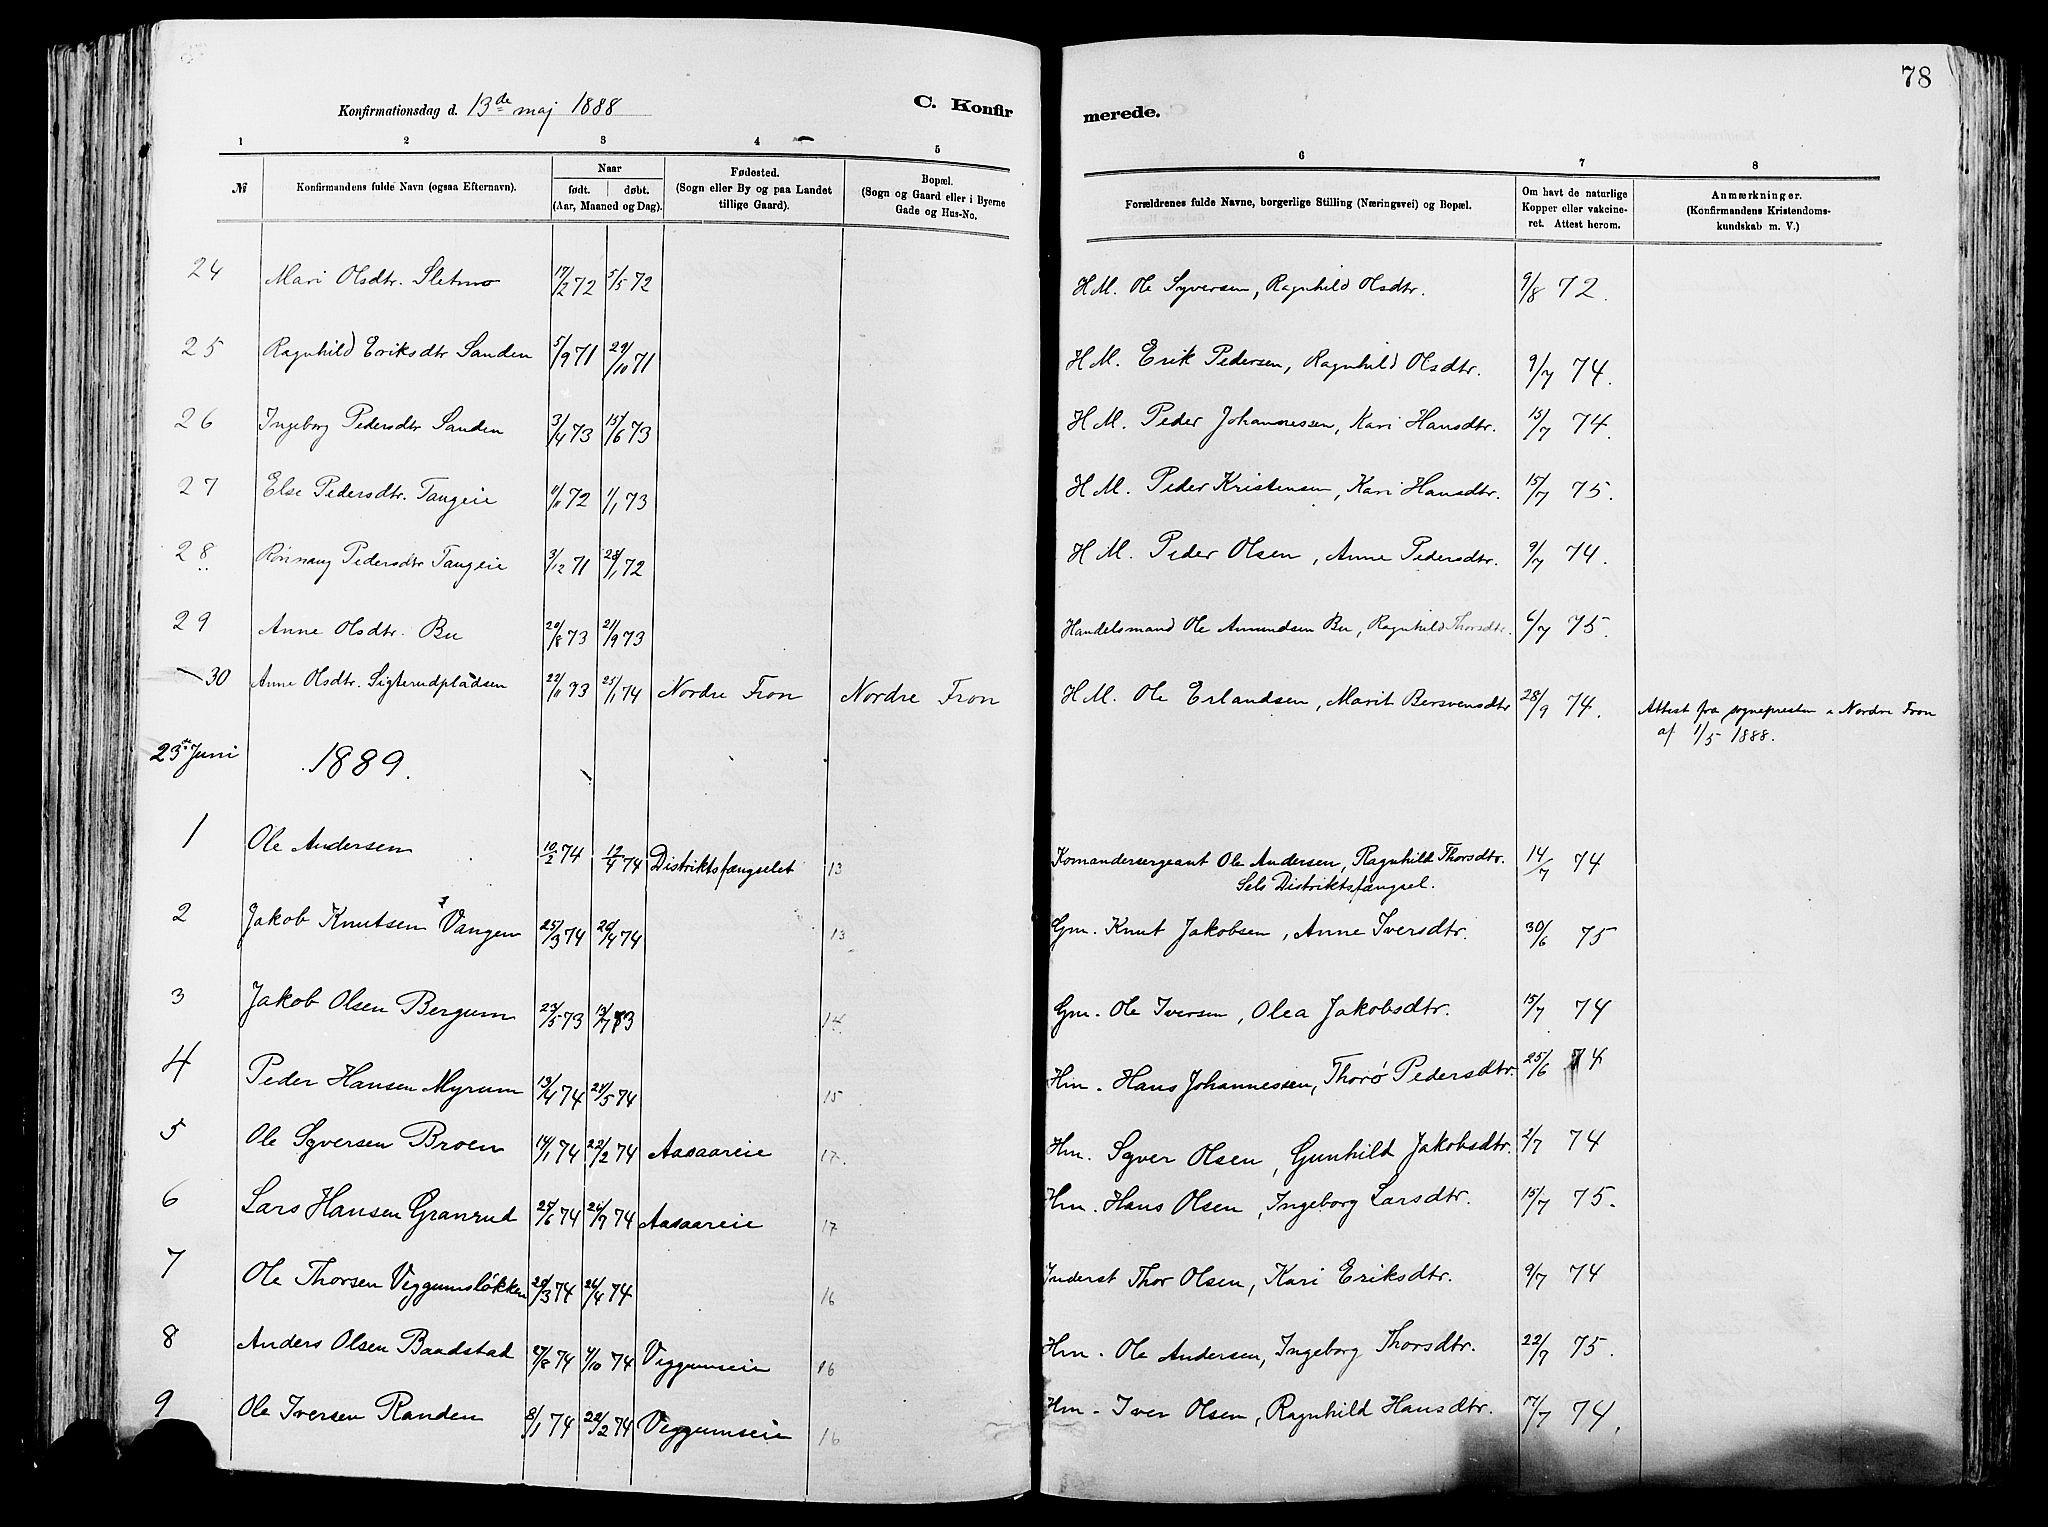 78
Konfirmationsdag d. 13de maj 1888
C. Konfir
merede.
1 2 3 4 5 6 7 8
№
Konfirmandens fulde Navn (ogsaa Efternavn).
Naar
født. døbt.
(Aar, Maaned og Dag).
Fødested.
(Sogn eller By og paa Landet
tillige Gaard).
Bopæl.
(Sogn og Gaard eller i Byerne
Gade og Hus-No.
Forældrenes fulde Navne, borgerlige Stilling (Næringsvei) og Bopæl.
Om havt de naturlige
Kopper eller vakcine-
ret. Attest herom.
Anmærkninger.
(Konfirmandens Kristendoms-
kundskab m. V.)
24 Mari Olsdtr. Sletmo 17/2 72 5/5 72 H M. Ole Syversen, Ragnhild Olsdtr. 9/8 72.
25 Ragnhild Eriksdtr Sanden 5/9 71 29/10 71 H M. Erik Pedersen, Ragnhild Olsdtr. 9/7 74.
26 Ingeborg Pedersdtr Sanden 3/4 73 15/6 73 H M. Peder Johannessen, Kari Hansdtr. 15/7 74.
27 Else Pedersdtr. Tangeie 11/11 72 1/1 73 H M. Peder Kristensen, Kari Hansdtr. 15/7 75.
28 Rønnaug Pedersdtr Tangeie 3/12 71 28/1 72 H M. Peder Olsen, Anne Pedersdtr. 9/7 74.
29 Anne Olsdtr. Bu 20/8 73 21/9 73 Handelsmand Ole Amundsen Bu, Ragnhild Thorsdtr. 6/7 75.
30 Anne Olsdtr. Sigterudpladsen 22/11 73 25/1 74 Nordre Fron Nordre Fron H M. Ole Erlandsen, Marit Bersvensdtr 28/9 74. Attest fra sognepresten i Nordre Fron
af 1/5 1888.
23de Juni 1889.
1 Ole Andersen 10/2 74 12/4 74 Distriktsfængselet 13 Komandersergeant Ole Andersen, Ragnhild Thorsdtr. 14/7 74
Sels Distriktsfængsel.
2 Jakob Knutsen Vangen 25/3 74 20/4 74 13 Gm. Knut Jakobsen, Anne Iversdtr. 30/6 75
3 Jakob Olsen Bergum 23/5 73 13/7 73 14 Gm. Ole Iversen, Olea Jakobsdtr. 15/7 74
4 Peder Hansen Myrum 13/4 74 21/5 74 15 Hm. Hans Johannessen, Thorø Pedersdtr. 25/6 74
5 Ole Syversen Broen 14/1 74 22/2 74 Aasaareie 17. Hm. Syver Olsen, Gunhild Jakobsdtr. 2/7 74
6 Lars Hansen Granrud 25/6 74 21/9 74 Aasaareie 17 Hm. Hans Olsen, Ingeborg Larsdtr. 15/7 75.
7 Ole Thorsen Veggumsløkken 20/3 74 26/4 74 16 Inderst Thor Olsen, Kari Eriksdtr. 9/7 74
8 Anders Olsen Baadstad 27/8 74 4/10 74 Veggumseie 16 Hm. Ole Andersen, Ingeborg Thorsdtr. 22/9 75.
9 Ole Iversen Randen 8/1 74 22/2 74 Veggumseie 16 Hm. Iver Olsen, Ragnhild Hansdtr. 17/7 74.